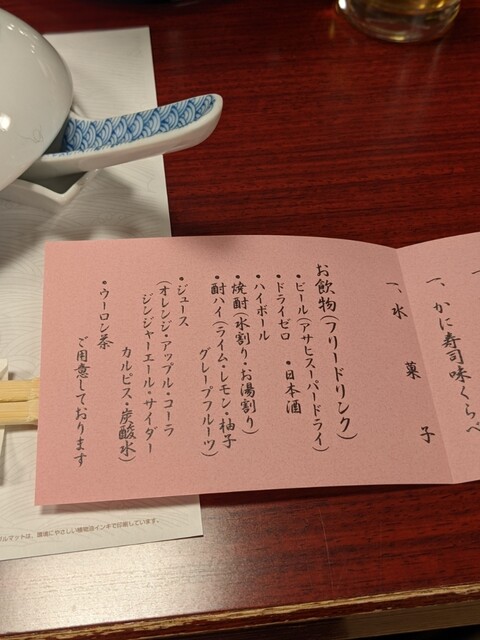 一、かに寿司味くらべ
一、水菓子
お飲物(フリードリンク)
・ビール(アサヒスーパードライ)
・ドライゼロ ・日本酒
・ハイボール
・焼酎(水割り・お湯割り)
・酎ハイ(ライム・レモン・柚子
グレープフルーツ)
・ジュース
(オレンジ・アップル・コーラ
ジンジャーエール・サイダー
カルピス・炭酸水)
・ウーロン茶
ご用意しております
マットは、環境にやさしい植物油インキで印刷しています。